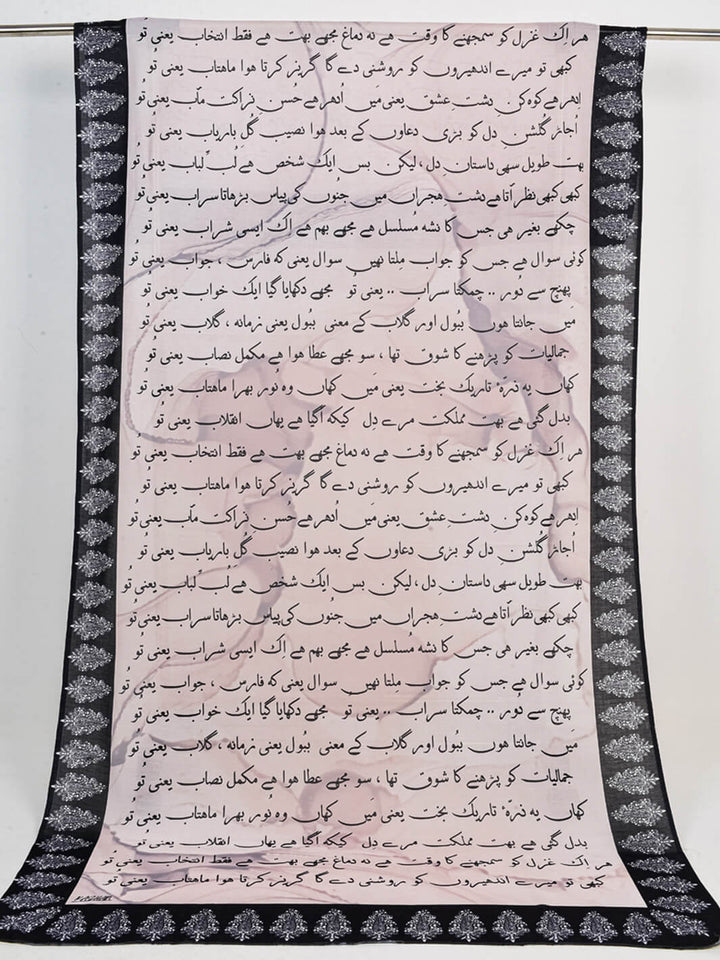 ہر اِک غزل کو سمجھنے کا وقت ہے نہ دماغ مجھے بہت ہے فقط انتخاب یعنی تُو
کبھی تو میرے اندھیروں کو روشنی دے گا گریز کرتا ہوا ماھتاب یعنی تُو
اِدھر ہے کوہ کن دشتِ عشق یعنی مَیں اُدھر ہے حُسن نزاکت مآب یعنی تُو
اجاڑ گُلشنِ دل کو بڑی دعاوں کے بعد ہوا نصیب گُل باریاب یعنی تُو
بہت طویل سہی داستانِ دل ، لیکن بس ایک شخص ہے لُبِ لباب یعنی تُو
کبھی کبھی نظر آتا ہے دشتِ ہجراں میں جنُوں کی پیاس بڑھاتا سراب یعنی تُو
چکھے بغیر ہی جس کا نشہ مُسلسل ہے مجھے بھم ہے اِک ایسی شراب یعنی تُو
کوئی سوال ہے جس کو جواب مِلتا نہیں سوال یعنی کہ فارس ، جواب یعنی تُو
پھنچ سے دُور .. چمکتا سراب .. یعنی تُو مجھے دکھایا گیا ایک خواب یعنی تُو
مَیں جانتا ہوں ببُول اور گلاب کے معنی ببُول یعنی زمانہ ، گلاب یعنی تُو
جمالیات کو پڑھنے کا شوق تھا ، سو مجھے عطا ہوا ہے مکمل نصاب یعنی تُو
کہاں یہ ذرّہٴ تاریک بخت یعنی مَیں کہاں وہ نُور بھرا ماھتاب یعنی تُو
بدل گئی ہے بہت مملکت مرے دِل کیکہ آگیا ہے یہاں انقلاب یعنی تُو
ہر اِک غزل کو سمجھنے کا وقت ہے نہ دماغ مجھے بہت ہے فقط انتخاب یعنی تُو
کبھی تو میرے اندھیروں کو روشنی دے گا گریز کرتا ہوا ماھتاب یعنی تُو
اِدھر ہے کوہ کن دشتِ عشق یعنی مَیں اُدھر ہے حُسن نزاکت مآب یعنی تُو
اجاڑ گُلشنِ دل کو بڑی دعاوں کے بعد ہوا نصیب گُل باریاب یعنی تُو
بہت طویل سہی داستانِ دل ، لیکن بس ایک شخص ہے لُبِ لباب یعنی تُو
کبھی کبھی نظر آتا ہے دشتِ ہجراں میں جنُوں کی پیاس بڑھاتا سراب یعنی تُو
چکھے بغیر ہی جس کا نشہ مُسلسل ہے مجھے بھم ہے اِک ایسی شراب یعنی تُو
کوئی سوال ہے جس کو جواب مِلتا نہیں سوال یعنی کہ فارس ، جواب یعنی تُو
پھنچ سے دُور .. چمکتا سراب .. یعنی تُو مجھے دکھایا گیا ایک خواب یعنی تُو
مَیں جانتا ہوں ببُول اور گلاب کے معنی ببُول یعنی زمانہ ، گلاب یعنی تُو
جمالیات کو پڑھنے کا شوق تھا ، سو مجھے عطا ہوا ہے مکمل نصاب یعنی تُو
کہاں یہ ذرّہٴ تاریک بخت یعنی مَیں کہاں وہ نُور بھرا ماھتاب یعنی تُو
بدل گئی ہے بہت مملکت مرے دِل کیکہ آگیا ہے یہاں انقلاب یعنی تُو
ہر اِک غزل کو سمجھنے کا وقت ہے نہ دماغ مجھے بہت ہے فقط انتخاب یعنی تُو
کبھی تو میرے اندھیروں کو روشنی دے گا گریز کرتا ہوا ماھتاب یعنی تُو